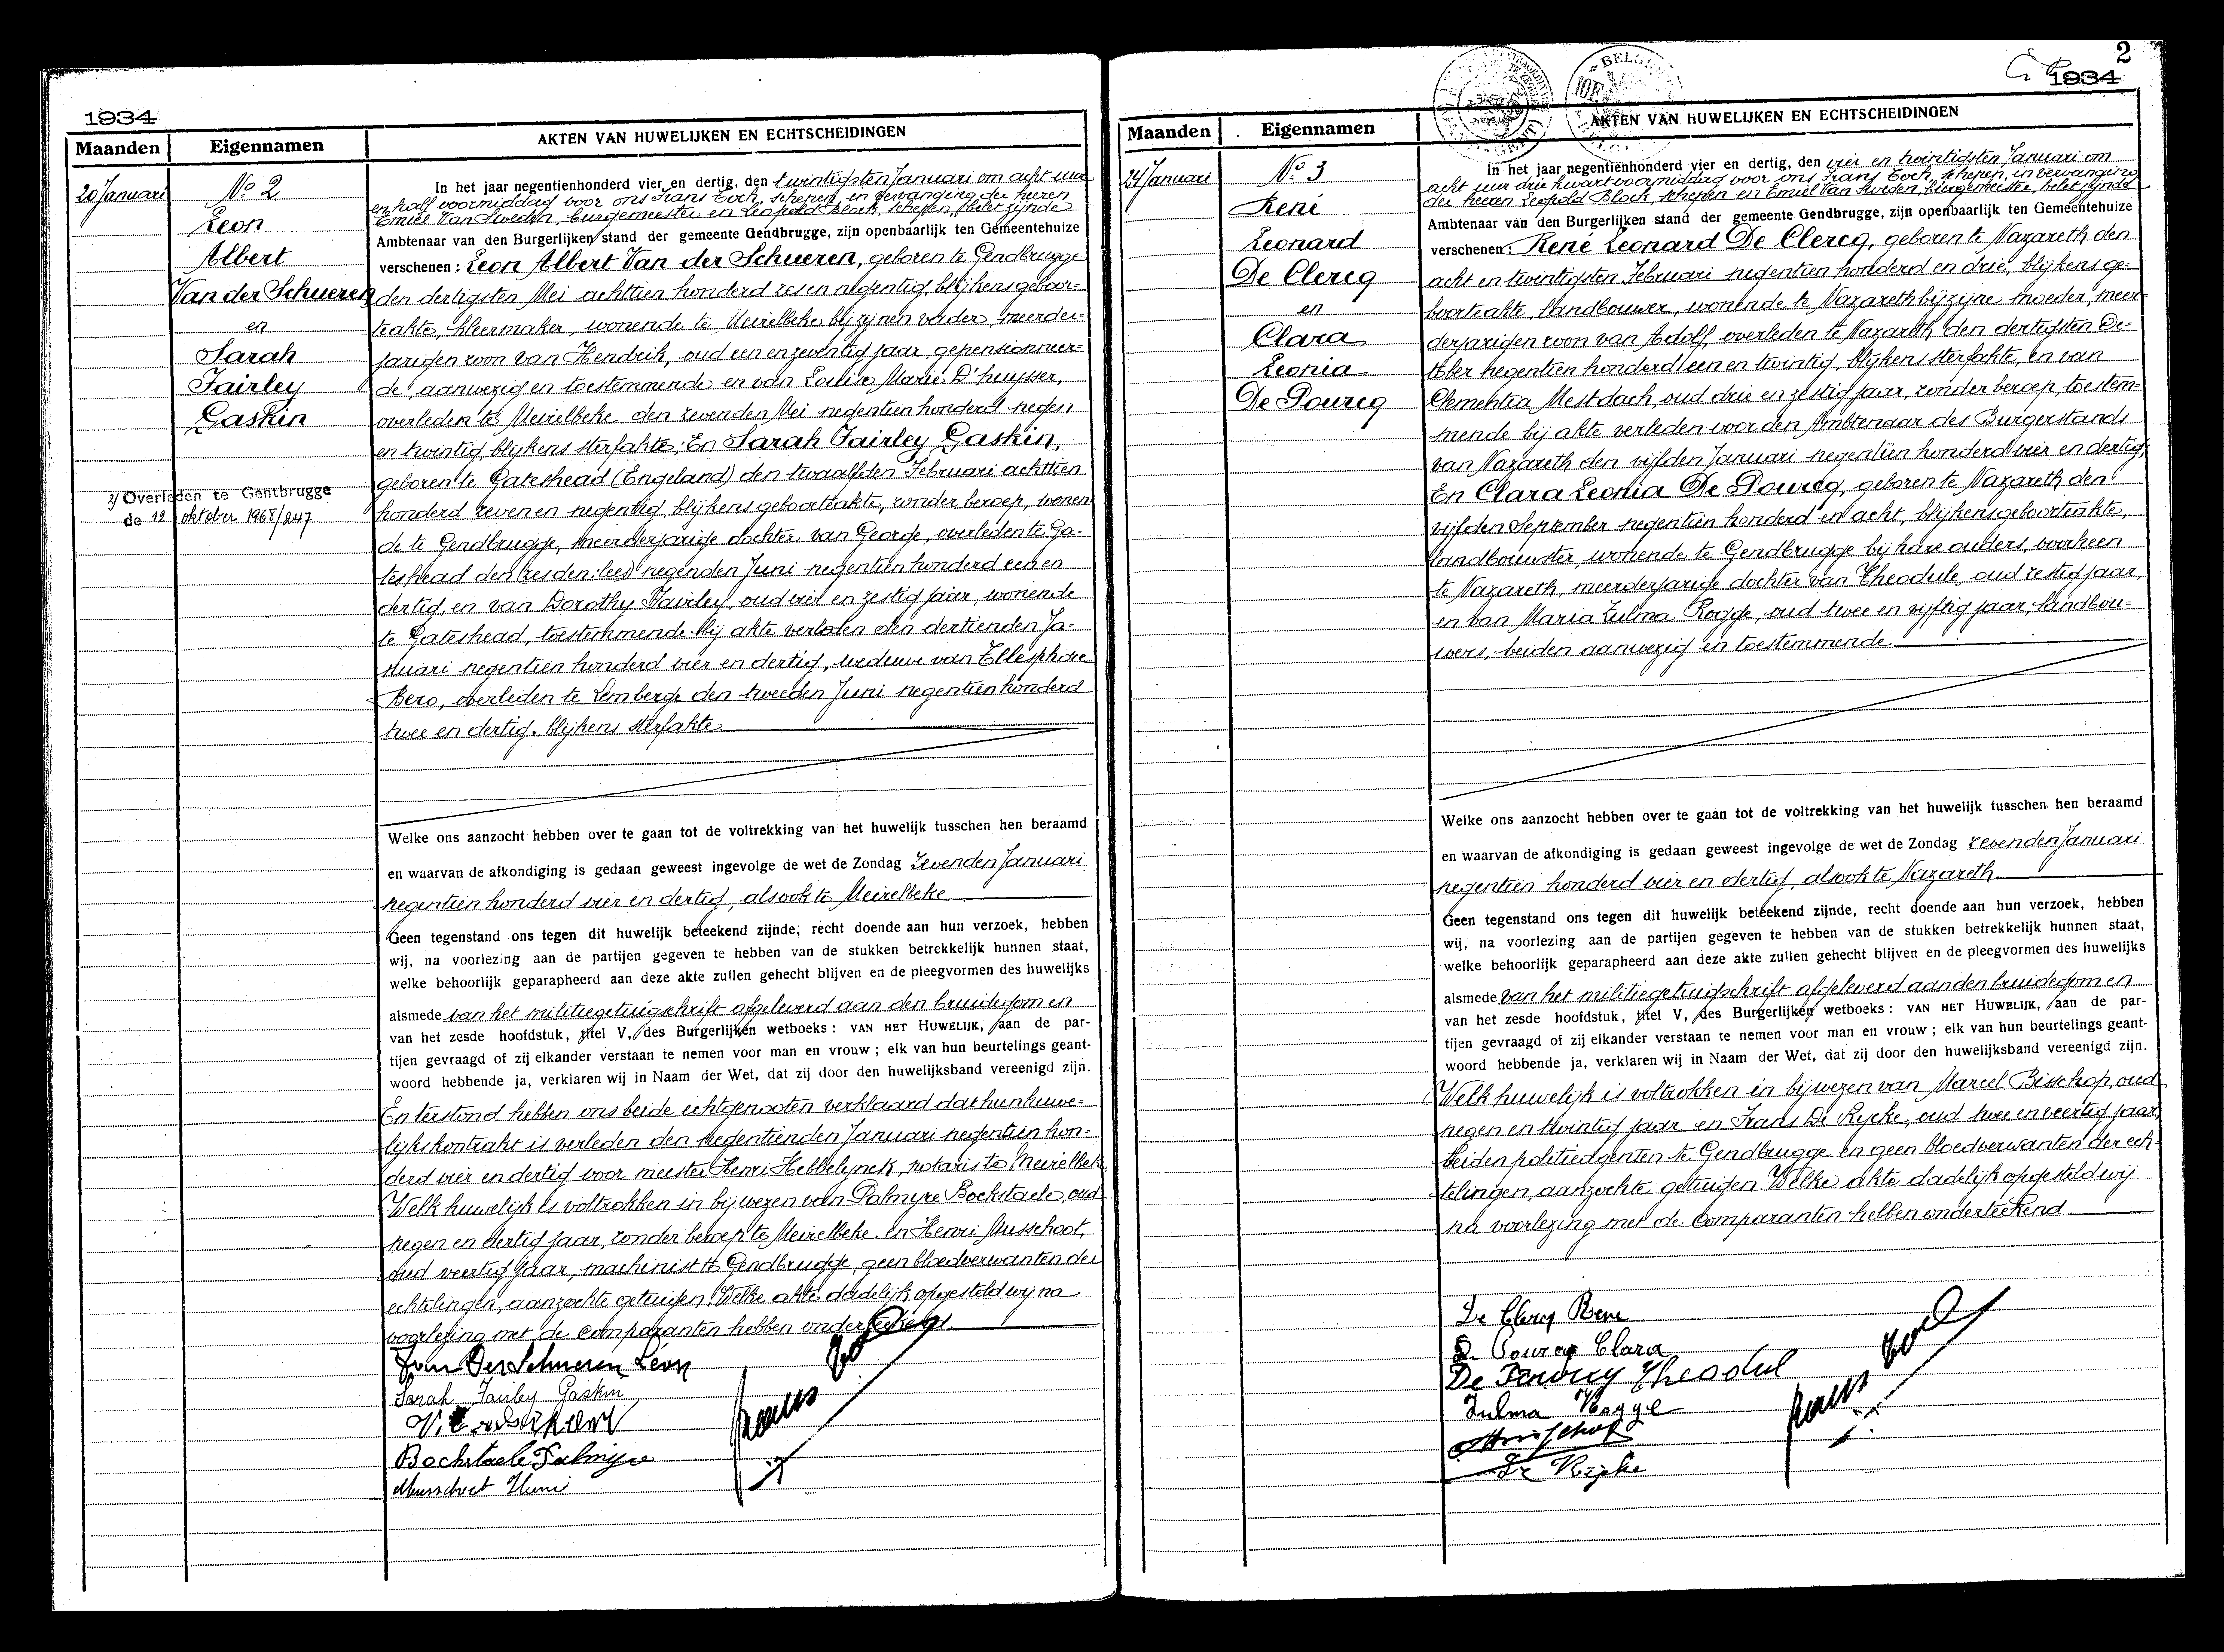 1934
Maanden
Eigennamen
AKTEN VAN HUWELIJKEN EN ECHTSCHEIDINGEN
20 Januari
No 2
Leon
Albert
Van der Schueren
en
Sarah
Fairley
Gaskin
2/ Overleden te Gentbrugge
de 12 oktober 1968/247
In het jaar negentienhonderd vier en dertig, den twintigsten Januari om acht uur
en half voormiddag voor ons Frans Toch, schepen, in vervanging der heeren
Emiel Van Sweden, burgemeester en Leopold Block, schepen, belet zijnde
Ambtenaar van den Burgerlijken stand der gemeente Gendbrugge, zijn openbaarlijk ten Gemeentehuize
verschenen: Leon Albert Van der Schueren, geboren te Gendbrugge
den dertigsten Mei achttien honderd zes en negentig, blijkens geboor-
teakte, kleermaker, wonende te Meirelbeke bij zijnen vader, meerder-
jarigen zoon van Hendrik, oud een en zeventig jaar, gepensionneer-
de, aanwezig en toestemmende en van Louise Marie D'huysser,
overleden te Meirelbeke den zevenden Mei negentien honderd negen
en twintig, blijkens sterfakte; En Sarah Fairley Gaskin,
geboren te Gateshead (Engeland) den twaalfden Februari achttien
honderd zeven en negentig, blijkens geboorteakte, zonder beroep, wonen-
de te Gendbrugge, meerderjarige dochter van George, overleden te Ga-
teshead den (zesden: lees) negenden Juni negentien honderd een en
dertig, en van Dorothy Fairley, oud vier en zestig jaar, wonende
te Gateshead, toestemmende bij akte verleden den dertienden Ja-
nuari negentien honderd vier en dertig, weduwe van Ellesphore
Bero, overleden te Lemberge den tweeden Juni negentien honderd
twee en dertig. blijkens sterfakte
Welke ons aanzocht hebben over te gaan tot de voltrekking van het huwelijk tusschen hen beraamd
en waarvan de afkondiging is gedaan geweest ingevolge de wet de Zondag zevenden Januari
negentien honderd vier en dertig, alsook te Meirelbeke
Geen tegenstand ons tegen dit huwelijk beteekend zijnde, recht doende aan hun verzoek, hebben
wij, na voorlezing aan de partijen gegeven te hebben van de stukken betrekkelijk hunnen staat,
welke behoorlijk geparapheerd aan deze akte zullen gehecht blijven en de pleegvormen des huwelijks
alsmede van het militiegetuigschrift afgeleverd aan den bruidegom en
van het zesde hoofdstuk, titel V, des Burgerlijken wetboeks: VAN HET HUWELIJK, aan de par-
tijen gevraagd of zij elkander verstaan te nemen voor man en vrouw; elk van hun beurtelings geant-
woord hebbende ja, verklaren wij in Naam der Wet, dat zij door den huwelijksband vereenigd zijn.
En terstond hebben ons beide echtgenooten verklaard dat hun huwe-
lijkskontrakt is verleden den negentienden Januari negentien hon-
derd vier en dertig voor meester Henri Hebbelynck, notaris te Meirelbeke
Welk huwelijk is voltrokken in bijwezen van Palmyre Bockstaele, oud
negen en dertig jaar, zonder beroep te Meirelbeke en Henri Musschoot,
oud veertig jaar, machinist te Gendbrugge, geen bloedverwanten der
echtelingen, aanzochte getuigen. Welke akte dadelijk opgesteld wij na
voorlezing met de comparanten hebben onderteekend.
Van Der Schueren Léon
Sarah Fairley Gaskin
Bockstaele Palmyre
Musschoot Henri
Frans Toch
2
1934
Maanden
Eigennamen
AKTEN VAN HUWELIJKEN EN ECHTSCHEIDINGEN
24 Januari
No 3
René
Leonard
De Clercq
en
Clara
Leonia
De Pourcq
In het jaar negentienhonderd vier en dertig, den vier en twintigsten Januari om
acht uur drie kwart voormiddag voor ons Frans Toch, schepen, in vervanging
der heeren Leopold Block, schepen en Emiel Van Sweden, burgemeester, belet zijnde
Ambtenaar van den Burgerlijken stand der gemeente Gendbrugge, zijn openbaarlijk ten Gemeentehuize
verschenen: René Leonard De Clercq, geboren te Nazareth den
acht en twintigsten Februari negentien honderd en drie, blijkens ge-
boorteakte, landbouwer, wonende te Nazareth bij zijne moeder, meer-
derjarigen zoon van Adolf, overleden te Nazareth den dertigsten Oc-
tober negentien honderd een en twintig, blijkens sterfakte, en van
Clementia Mestdach, oud drie en zestig jaar, zonder beroep, toestem-
mende bij akte verleden voor den Ambtenaar des Burgerstands
van Nazareth den vijfden Januari negentien honderd vier en dertig;
En Clara Leonia De Pourcq, geboren te Nazareth den
vijfden September negentien honderd en acht, blijkens geboorteakte,
landbouwster, wonende te Gendbrugge bij hare ouders, voorheen
te Nazareth, meerderjarige dochter van Theodule, oud zestig jaar,
en van Maria Zulma Rogge, oud twee en vijftig jaar, landbou-
wers, beiden aanwezig en toestemmende
Welke ons aanzocht hebben over te gaan tot de voltrekking van het huwelijk tusschen hen beraamd
en waarvan de afkondiging is gedaan geweest ingevolge de wet de Zondag zevenden Januari
negentien honderd vier en dertig, alsook te Nazareth
Geen tegenstand ons tegen dit huwelijk beteekend zijnde, recht doende aan hun verzoek, hebben
wij, na voorlezing aan de partijen gegeven te hebben van de stukken betrekkelijk hunnen staat,
welke behoorlijk geparapheerd aan deze akte zullen gehecht blijven en de pleegvormen des huwelijks
alsmede van het militiegetuigschrift afgeleverd aan den bruidegom en
van het zesde hoofdstuk, titel V, des Burgerlijken wetboeks: VAN HET HUWELIJK, aan de par-
tijen gevraagd of zij elkander verstaan te nemen voor man en vrouw; elk van hun beurtelings geant-
woord hebbende ja, verklaren wij in Naam der Wet, dat zij door den huwelijksband vereenigd zijn.
Welk huwelijk is voltrokken in bijwezen van Marcel Bisschop, oud
negen en twintig jaar en Frans De Rycke, oud twee en veertig jaar,
beiden politieagenten te Gendbrugge en geen bloedverwanten der ech-
telingen, aanzochte getuigen. Welke akte dadelijk opgesteld wij
na voorlezing met de comparanten hebben onderteekend
De Clercq Rene
De Pourcq Clara
De Pourcq Theodul
Zulma Rogge
De Rycke
Frans Toch